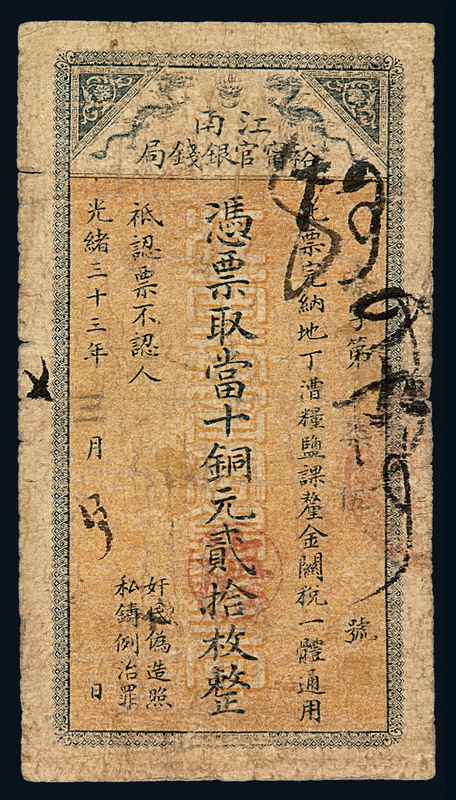 江南
裕甯官銀錢局
第 號
票完納地丁漕糧鹽課釐金關稅一體通用
憑票取當十銅元貳拾枚整
祗認票不認人
奸民偽造照
私鑄例治罪
光緒三十三年三月 日